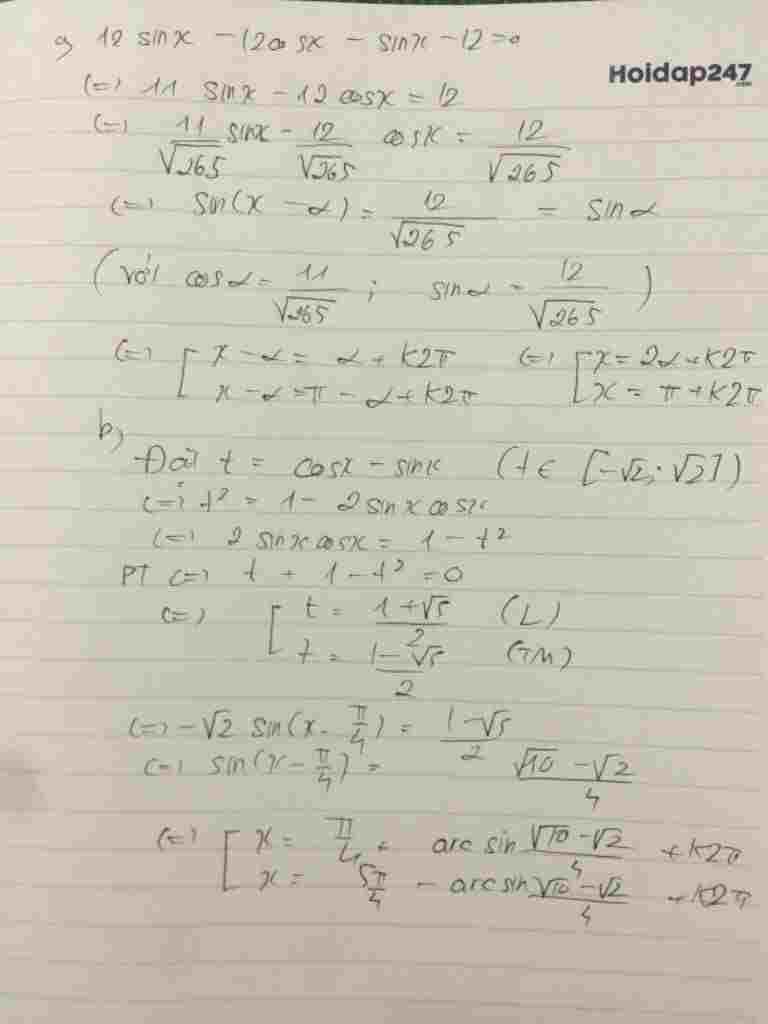 a, 12 sinx - 12cosx - sinx - 12 = 0
Hoidap247
.com
(=) 11 sinx - 12 cosx = 12
(=) 11/√265 sinx - 12/√265 cosx = 12/√265
(=) sin(x - α) = 12/√265 = sinα
(với cosα = 11/√265 ; sinα = 12/√265)
(=) [ x - α = α + k2π (=) [ x = 2α + k2π
x - α = π - α + k2π x = π + k2π
b,
Đặt t = cosx - sinx (t ∈ [-√2; √2])
(=) t² = 1 - 2sinxcosx
(=) 2 sinxcosx = 1 - t²
PT (=) t + 1 - t² = 0
(=) [ t = (1 + √5)/2 (L)
t = (1 - √5)/2 (TM)
(=) -√2 sin(x - π/4) = (1 - √5)/2
(=) sin(x - π/4) = (√10 - √2)/4
(=) [ x = π/4 + arcsin (√10 - √2)/4 + k2π
x = 5π/4 - arcsin (√10 - √2)/4 + k2π